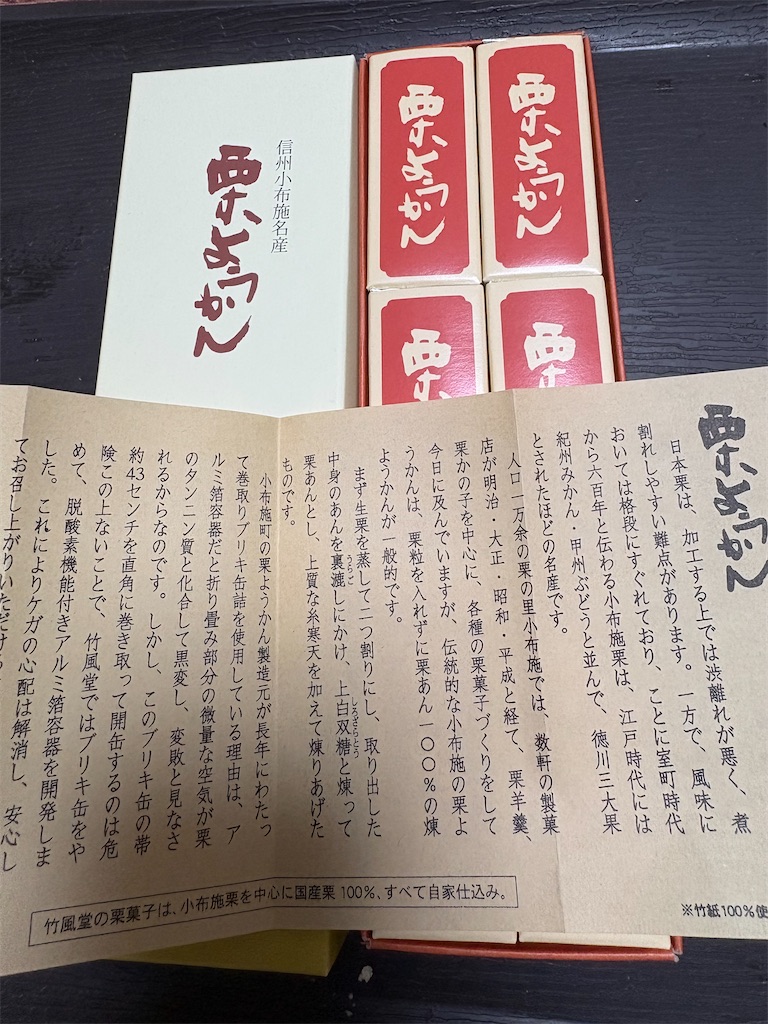 信州小布施名産
栗ようかん
栗ようかん
栗ようかん
栗
栗
栗ようかん
日本栗は、加工する上では渋離れが悪く、煮
割れしやすい難点があります。一方で、風味に
おいては格段にすぐれており、ことに室町時代
から六百年と伝わる小布施栗は、江戸時代には
紀州みかん・甲州ぶどうと並んで、徳川三大果
とされたほどの名産です。
人口一万余の栗の里小布施では、数軒の製菓
店が明治・大正・昭和・平成と経て、栗羊羹、
栗かの子を中心に、各種の栗菓子づくりをして
今日に及んでいますが、伝統的な小布施の栗よ
うかんは、栗粒を入れずに栗あん一〇〇%の煉
ようかんが一般的です。
まず生栗を蒸して二つ割りにし、取り出した
中身のあんを裏漉しにかけ、上白双糖と煉って
うらご
しろざらとう
栗あんとし、上質な糸寒天を加えて煉りあげた
ものです。
小布施町の栗ようかん製造元が長年にわたっ
て巻取りブリキ缶詰を使用している理由は、ア
ルミ箔容器だと折り畳み部分の微量な空気が栗
のタンニン質と化合して黒変し、変敗と見なさ
れるからなのです。しかし、このブリキ缶の帯
約43センチを直角に巻き取って開缶するのは危
険この上ないことで、竹風堂ではブリキ缶をや
めて、脱酸素機能付きアルミ箔容器を開発しま
した。これによりケガの心配は解消し、安心し
てお召し上がりいただける
竹風堂の栗菓子は、小布施栗を中心に国産栗100%、すべて自家仕込み。
※竹紙100%使